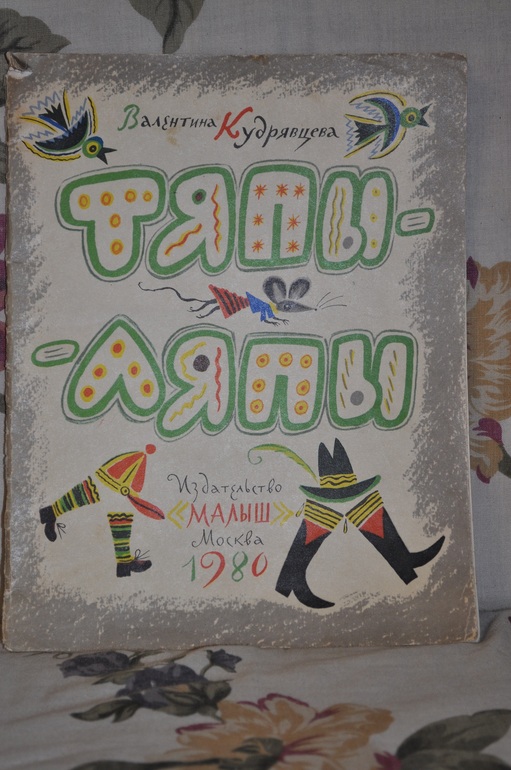 Валентина Кудрявцева
ТЯПЫ-
-ЛЯПЫ
Издательство
«МАЛЫШ»
Москва
1980